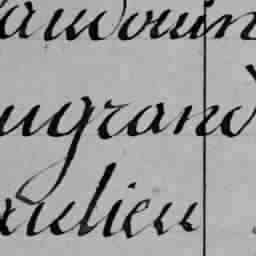 audouin
ugrand
aulieu